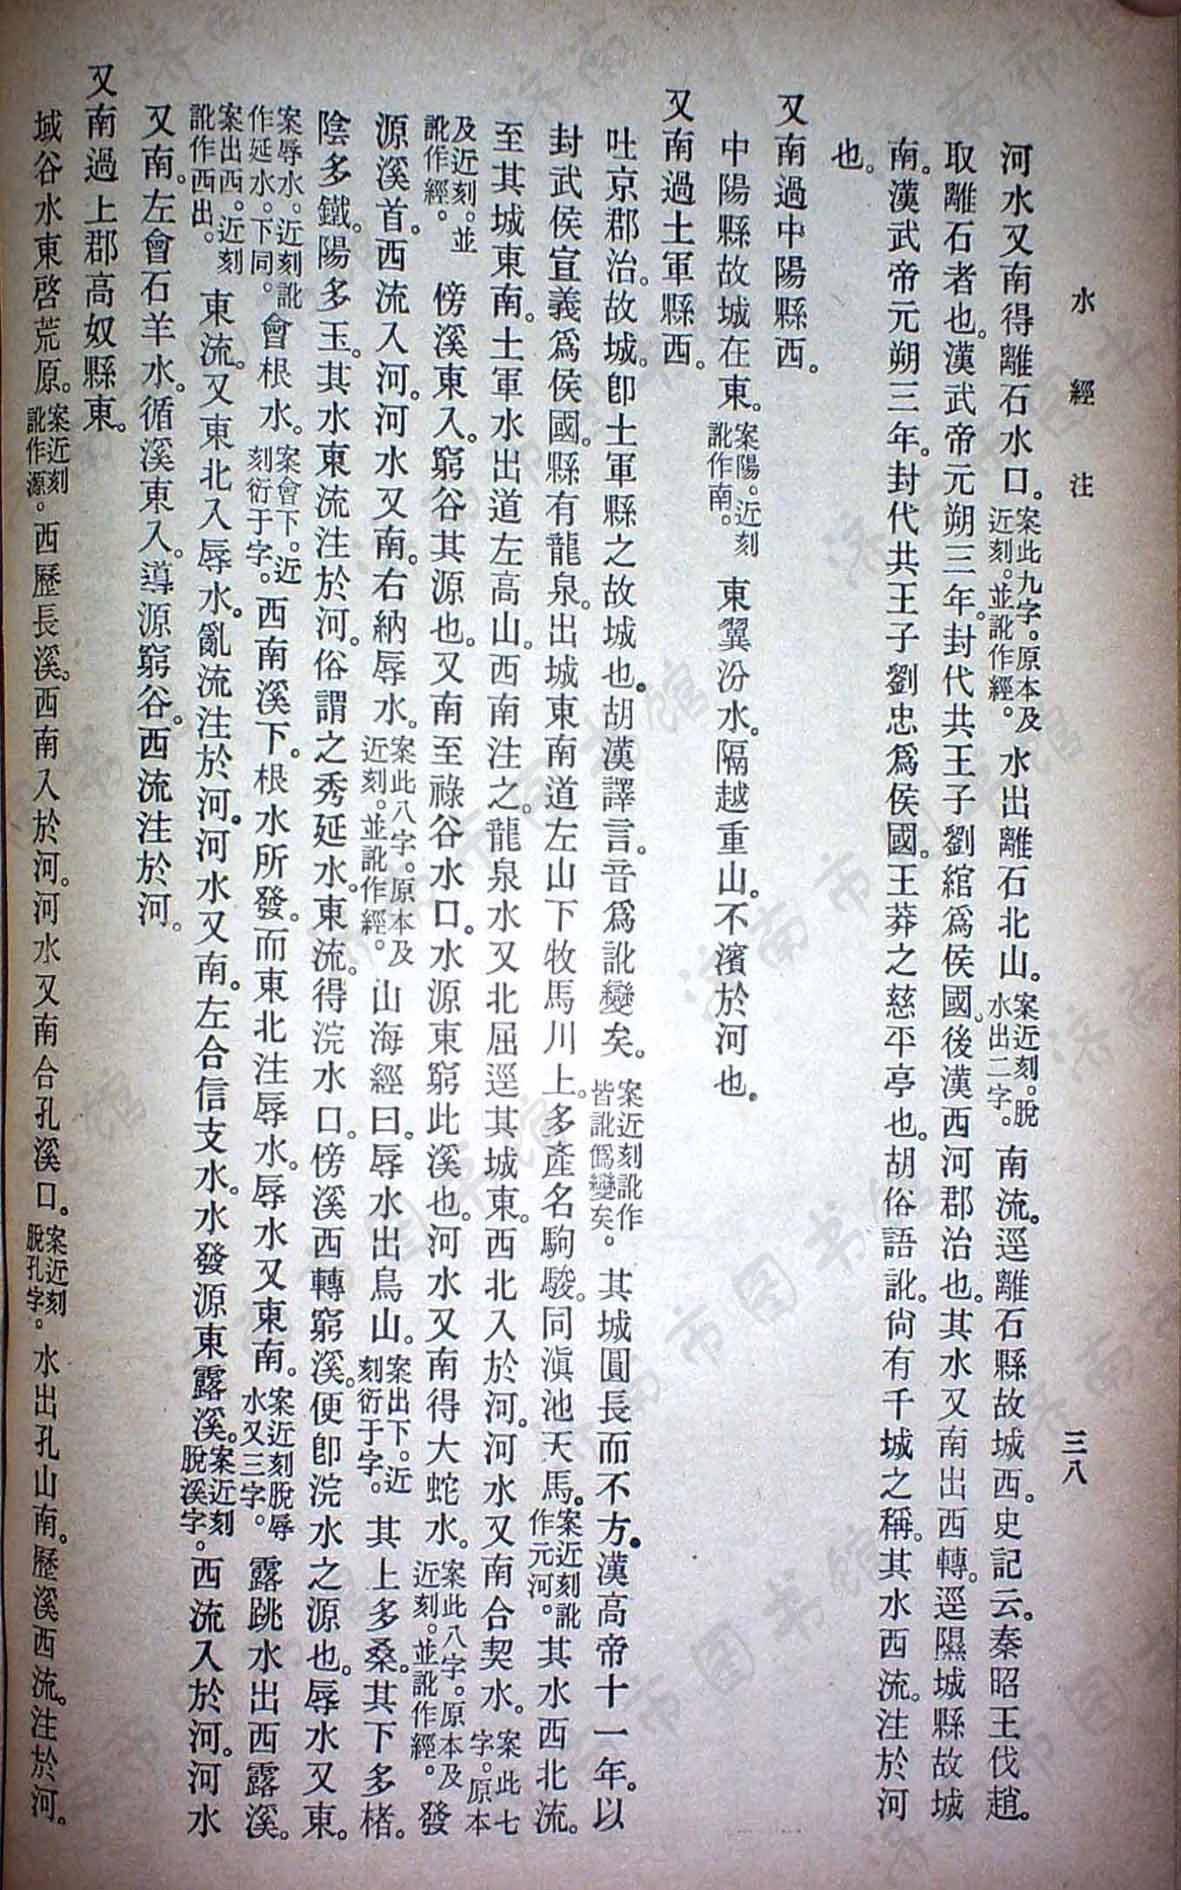 水經注 三八
河水又南得離石水口。案此九字。原本及近刻。並訛作經。水出離石北山。案近刻。脫水出二字。南流。逕離石縣故城西。史記云。秦昭王伐趙。
取離石者也。漢武帝元朔三年。封代共王子劉綰爲侯國。後漢西河郡治也。其水又南出西轉。逕隰城縣故城
南。漢武帝元朔三年。封代共王子劉忠爲侯國。王莽之慈平亭也。胡俗語訛。尙有千城之稱。其水西流。注於河
也。
又南過中陽縣西。
中陽縣故城在東。案陽。近刻訛作南。東翼汾水。隔越重山。不濱於河也。
又南過土軍縣西。
吐京郡治。故城。卽土軍縣之故城也。胡漢譯言。音爲訛變矣。案近刻訛作皆訛僞變矣。其城圓長而不方。漢高帝十一年。以
封武侯宣義爲侯國。縣有龍泉。出城東南道左山下牧馬川上。多產名駒駿。同滇池天馬。案近刻訛作元河。其水西北流。
至其城東南。土軍水出道左高山。西南注之。龍泉水又北屈逕其城東。西北入於河。河水又南合契水。案此七字。原本
及近刻。並訛作經。傍溪東入。窮谷其源也。又南至祿谷水口。水源東窮此溪也。河水又南得大蛇水。案此八字。原本及近刻。並訛作經。發
源溪首。西流入河。河水又南。右納辱水。案此八字。原本及近刻。並訛作經。山海經曰。辱水出鳥山。案出下。近刻衍于字。其上多桑。其下多楮。
陰多鐵。陽多玉。其水東流注於河。俗謂之秀延水。東流。得浣水口。傍溪西轉窮溪。便卽浣水之源也。辱水又東。
案辱水。近刻訛作延水。下同。會根水。案會下。近刻衍于字。西南溪下。根水所發。而東北注辱水。辱水又東南。案近刻脫辱水又三字。露跳水出西露溪。
案出西。近刻訛作西出。東流。又東北入辱水。亂流注於河。河水又南。左合信支水。水發源東露溪。案近刻脫溪字。西流入於河。河水
又南。左會石羊水。循溪東入。導源窮谷。西流注於河。
又南過上郡高奴縣東。
域谷水東啓荒原。案近刻訛作源。西歷長溪。西南入於河。河水又南合孔溪口。案近刻脫孔字。水出孔山南。歷溪西流。注於河。